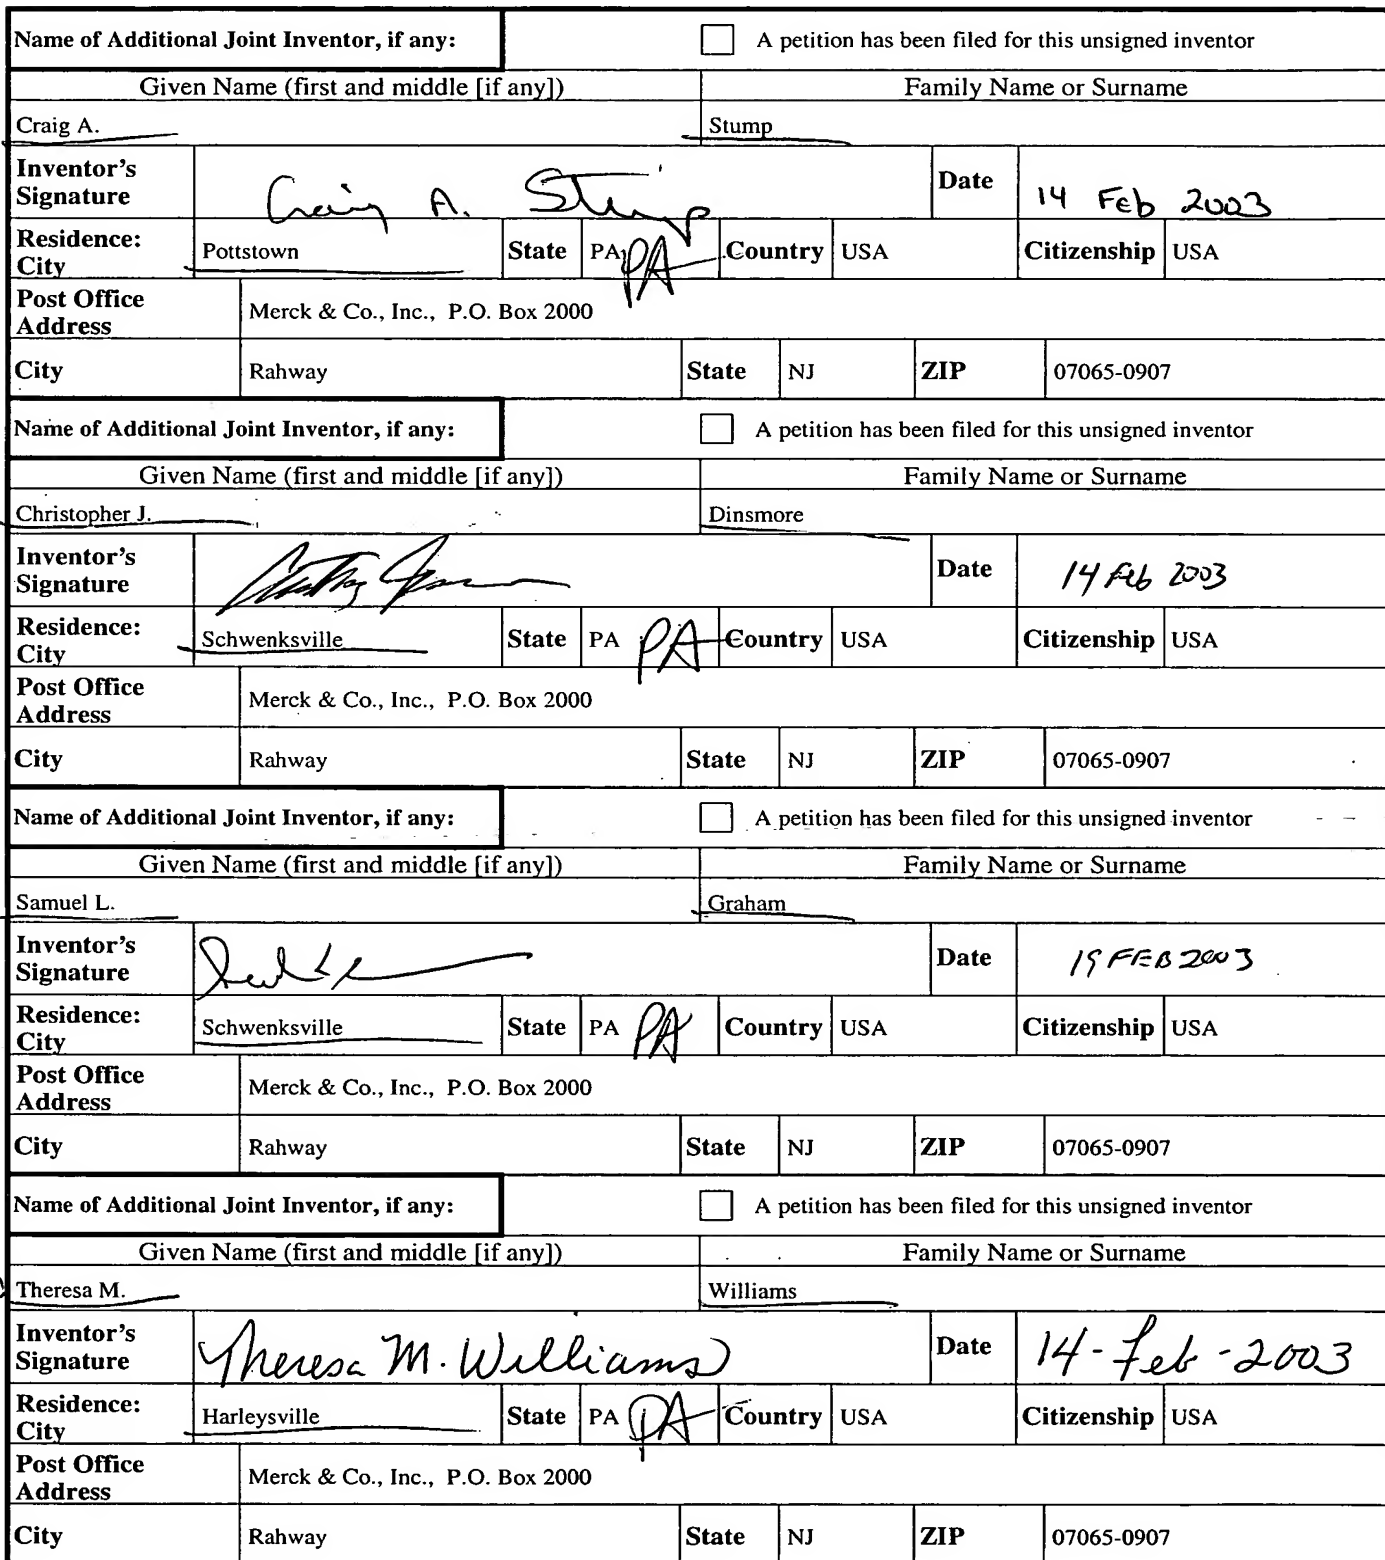 Name of Additional Joint Inventor, if any: A petition has been filed for this unsigned inventor
Given Name (first and middle [if any]) Family Name or Surname
Craig A. Stump
Inventor's Signature Craig A. Stump Date 14 Feb 2003
Residence: City Pottstown State PA PA Country USA Citizenship USA
Post Office Address Merck & Co., Inc., P.O. Box 2000
City Rahway State NJ ZIP 07065-0907
Name of Additional Joint Inventor, if any: A petition has been filed for this unsigned inventor
Given Name (first and middle [if any]) Family Name or Surname
Christopher J. Dinsmore
Inventor's Signature Date 14 Feb 2003
Residence: City Schwenksville State PA PA Country USA Citizenship USA
Post Office Address Merck & Co., Inc., P.O. Box 2000
City Rahway State NJ ZIP 07065-0907
Name of Additional Joint Inventor, if any: A petition has been filed for this unsigned inventor
Given Name (first and middle [if any]) Family Name or Surname
Samuel L. Graham
Inventor's Signature Date 19 FEB 2003
Residence: City Schwenksville State PA PA Country USA Citizenship USA
Post Office Address Merck & Co., Inc., P.O. Box 2000
City Rahway State NJ ZIP 07065-0907
Name of Additional Joint Inventor, if any: A petition has been filed for this unsigned inventor
Given Name (first and middle [if any]) Family Name or Surname
Theresa M. Williams
Inventor's Signature Theresa M. Williams Date 14-Feb-2003
Residence: City Harleysville State PA PA Country USA Citizenship USA
Post Office Address Merck & Co., Inc., P.O. Box 2000
City Rahway State NJ ZIP 07065-0907